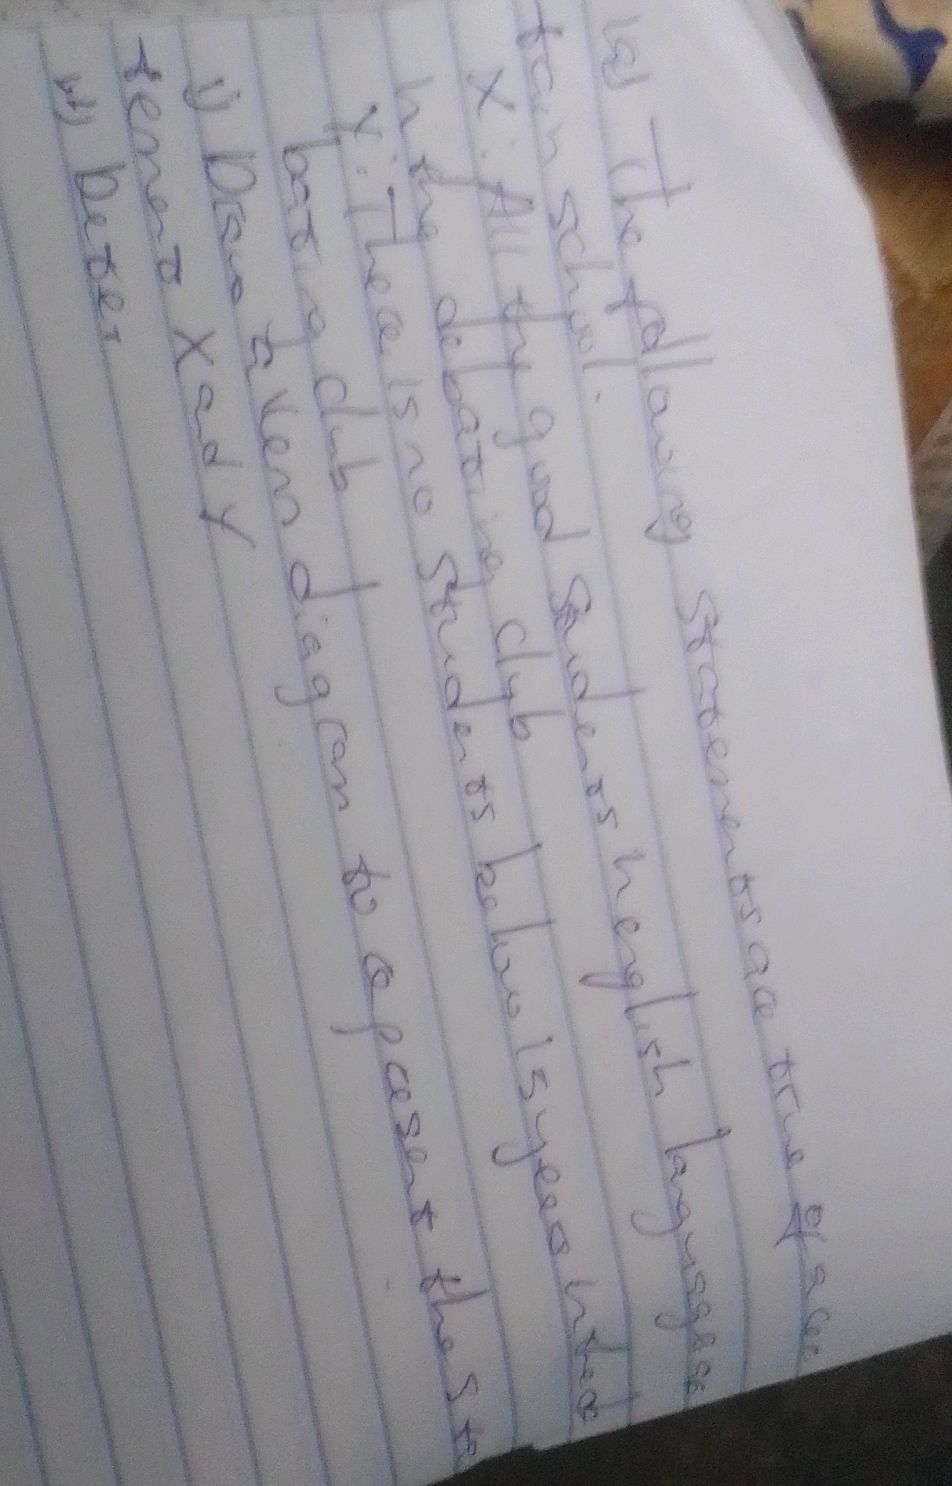 1a) The following statements are true of a cer
tain school.
X: All the good students in english language are
in the debating club
Y: There is no students below 15 years in the de
bating club
i) Draw a Venn diagram to represent the sta
tement X and Y
ii) Deter